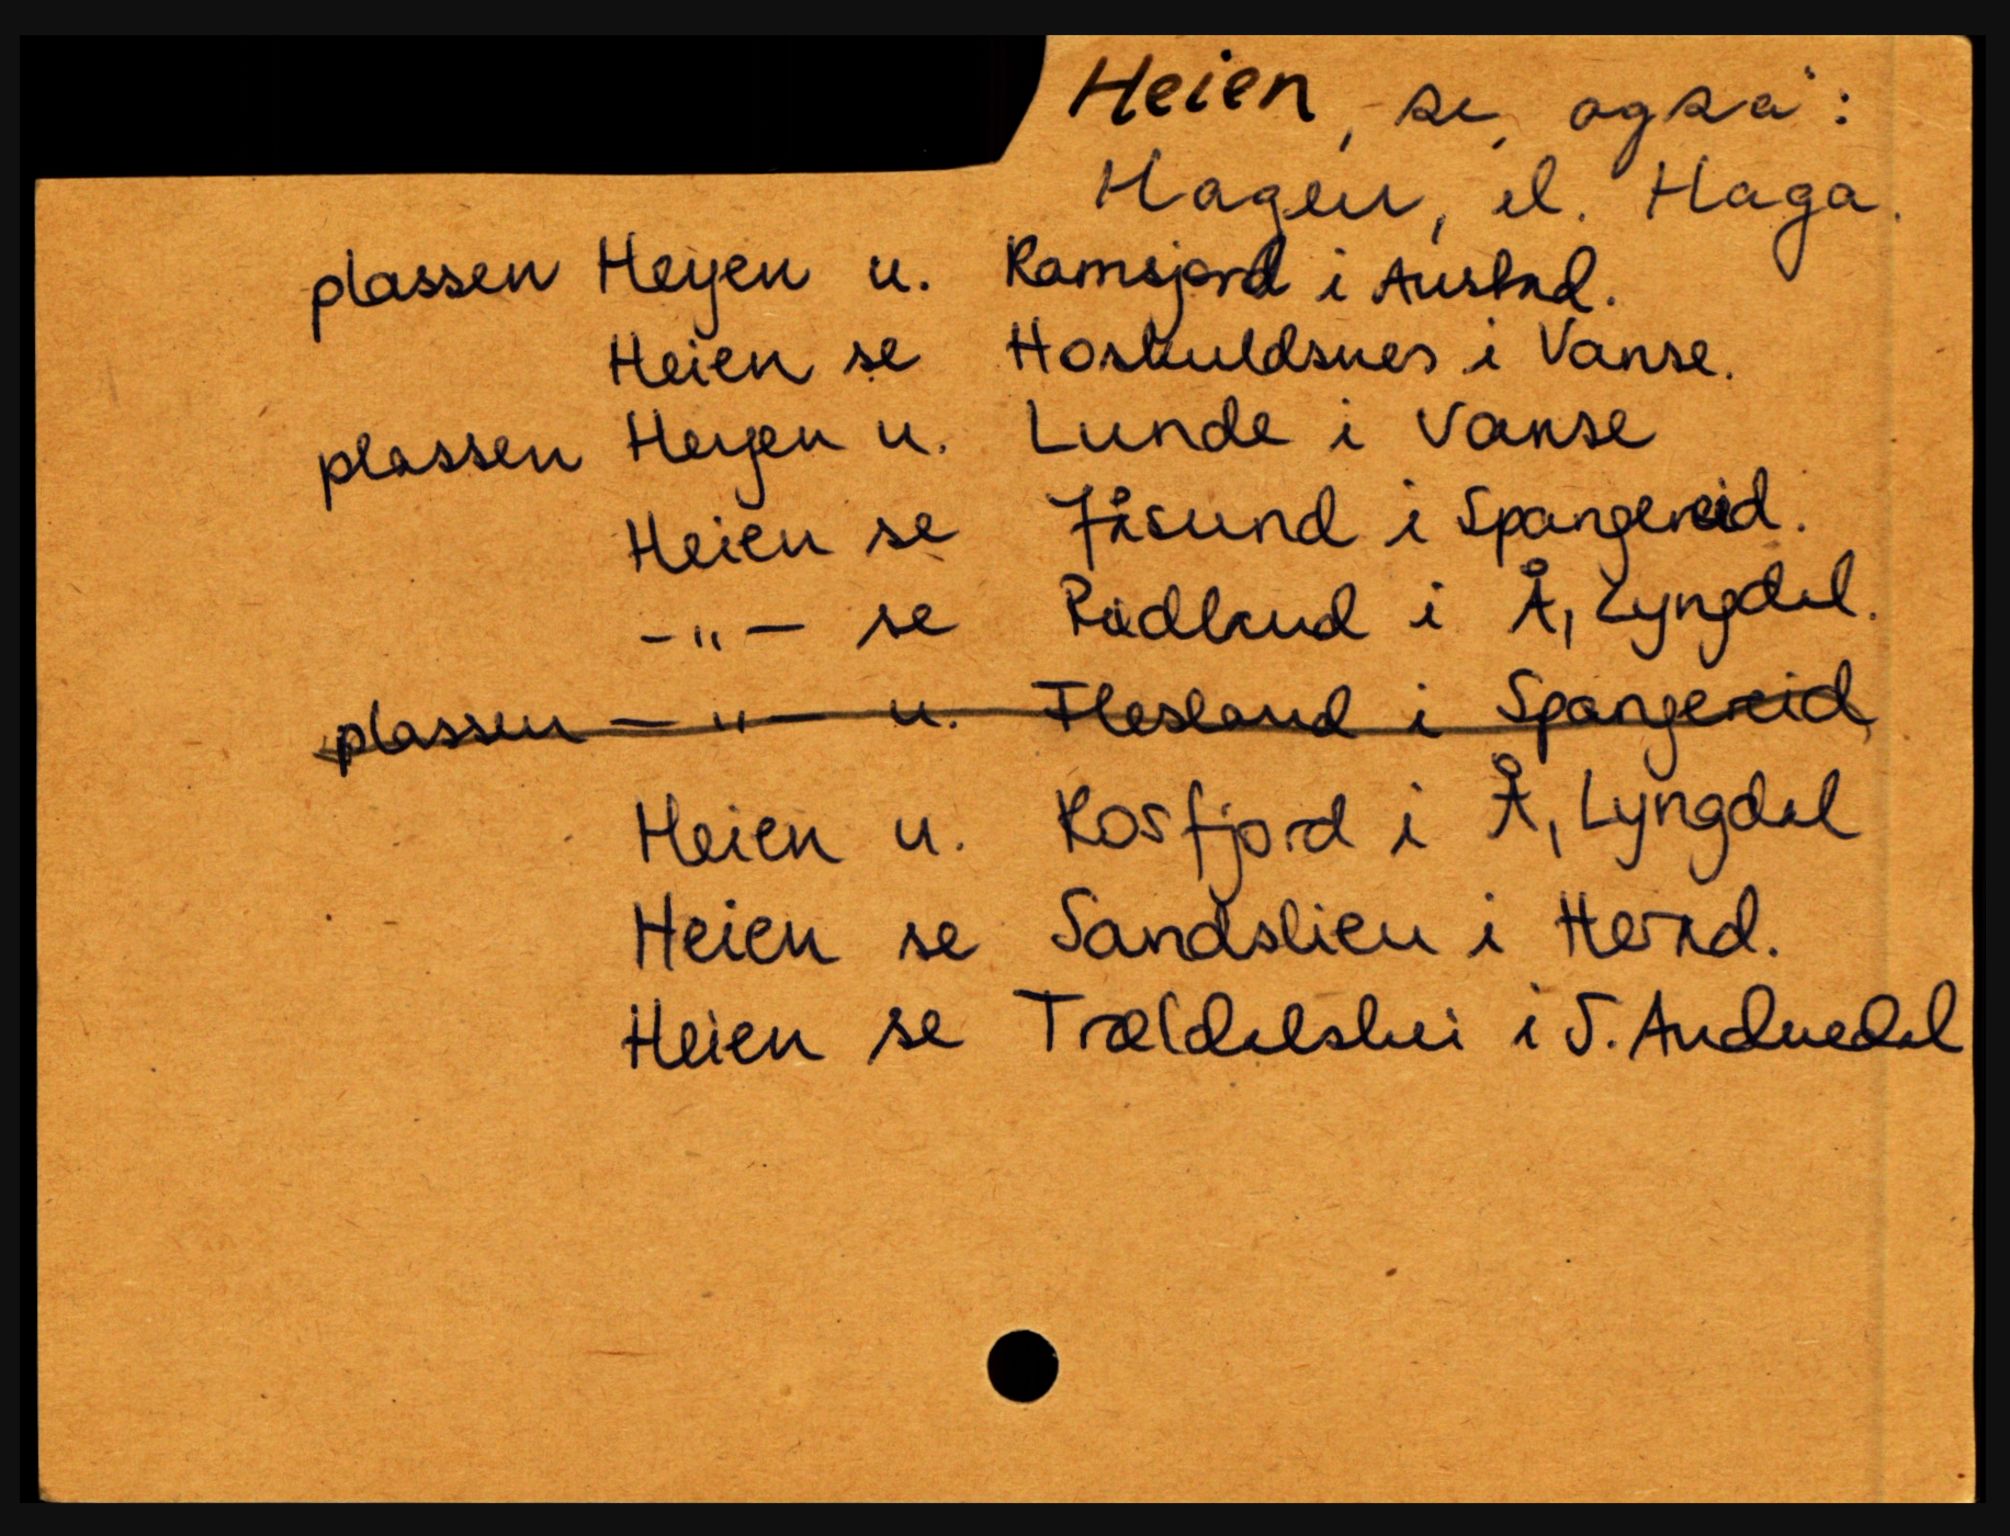 Heien, se også:
Hagen, el. Haga.
plassen Heyen u. Ramsjord i Austad.
Heien se Hoskuldsnes i Vanse.
plassen Heyen u. Lunde i Vanse
Heien se Jåsund i Spangereid.
-"- se Rødland i Å, Lyngdal.
plassen -"- u. Flesland i Spangereid
Heien u. Rosfjord i Å, Lyngdal
Heien se Sandslien i Herad.
Heien se Trældalshei i S. Audnedal